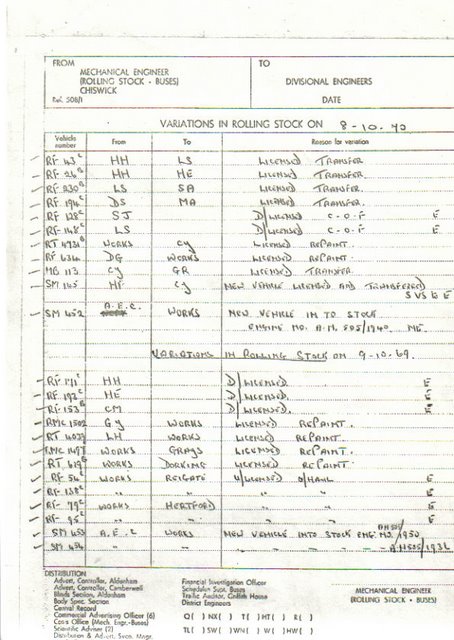 FROM
MECHANICAL ENGINEER
(ROLLING STOCK - BUSES)
CHISWICK
Ref. 508/1
TO
DIVISIONAL ENGINEERS
DATE
VARIATIONS IN ROLLING STOCK ON 8-10.70
Vehicle number From To Reason for variation
RF 43 C HH LS LICENSED TRANSFER
RF 26 B HH HE LICENSED TRANSFER.
RF 230 B LS SA LICENSED TRANSFER.
RF 194 C DS MA LICENSED TRANSFER.
RF 128 C SJ D/LICENSED C-O-F E
RF 148 C LS D/LICENSED C.O.F. E
RT WORKS CY LICENSED REPAINT.
RF 634 DG WORKS LICENSED REPAINT.
MB 113 CY GR LICENSED TRANSFER.
SM 145 HF CY NEW VEHICLE LICENSED AND TRANSFERED
SM 452 A.E.C. WORKS NEW VEHICLE IN TO STOCK
ENGINE NO. A.H. 505/1940. ME.
VARIATIONS IN ROLLING STOCK ON 9-10.69.
RF 171 C HH D/LICENSED E
RF 192 C HE D/LICENSED. E
RF 153 B CM D/LICENSED. E.
RMC 1502 GY WORKS LICENSED REPAINT.
RT 4039 LH WORKS LICENSED REPAINT.
RMC 1497 WORKS GRAYS LICENSED REPAINT.
RT 619 WORKS DORKING LICENSED REPAINT
RF 54 C WORKS REIGATE U/LICENSED O/HAUL E
RF 138 C " " " " E
RF 79 C WORKS HERTFORD " " E
RF 95 C " " " " E
SM 453 A.E.C WORKS NEW VEHICLE INTO STOCK ENG. NO. AH505/1950
SM 454 " " " " " " AH505/1936
DISTRIBUTION
Advert. Controller, Aldenham
Advert. Controller, Camberwell
Blinds Section, Aldenham
Body Spec. Section
Central Record
Commercial Advertising Officer (6)
Costs Office (Mech. Engr.-Buses)
Scientific Adviser (2)
Distribution & Advert. Svcs. Mngr.
Financial Investigation Officer
Schedules Supt. Buses
Traffic Auditor, Griffith House
District Engineers
Q( ) NX( ) T( ) HT( ) R( )
TL( ) SW( ) WN( ) W( ) HW( )
MECHANICAL ENGINEER
(ROLLING STOCK - BUSES)